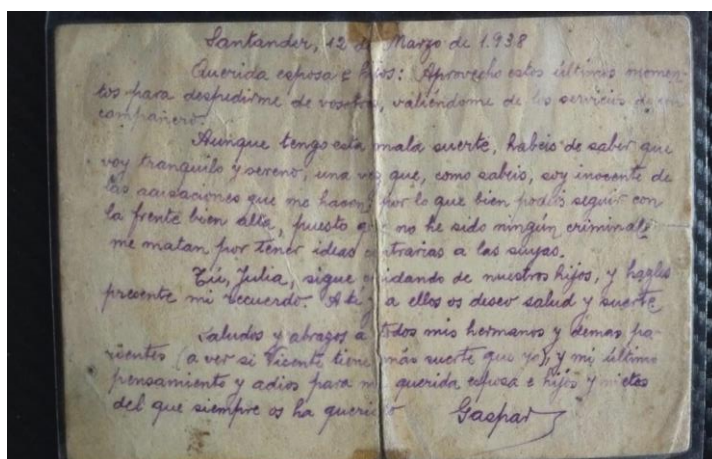 Santander, 12 de Marzo de 1.938
Querida esposa e hijos: Aprovecho estos últimos momen-
tos para despedirme de vosotros, valiéndome de los servicios de un
compañero.
Aunque tengo esta mala suerte, habeis de saber que
voy tranquilo y sereno, una vez que, como sabeis, soy inocente de
las acusaciones que me hacen, por lo que bien podeis seguir con
la frente bien alta, puesto que no he sido ningún criminal,
me matan por tener ideas contrarias a las suyas.
Tú, Julia, sigue cuidando de nuestros hijos, y hazles
presente mi recuerdo. A ti y a ellos os deseo salud y suerte
Saludos y abrazos a todos mis hermanos y demas pa-
rientes (a ver si Vicente tiene más suerte que yo), y mi último
pensamiento y adios para mi querida esposa e hijos y nietos
del que siempre os ha querido Gaspar